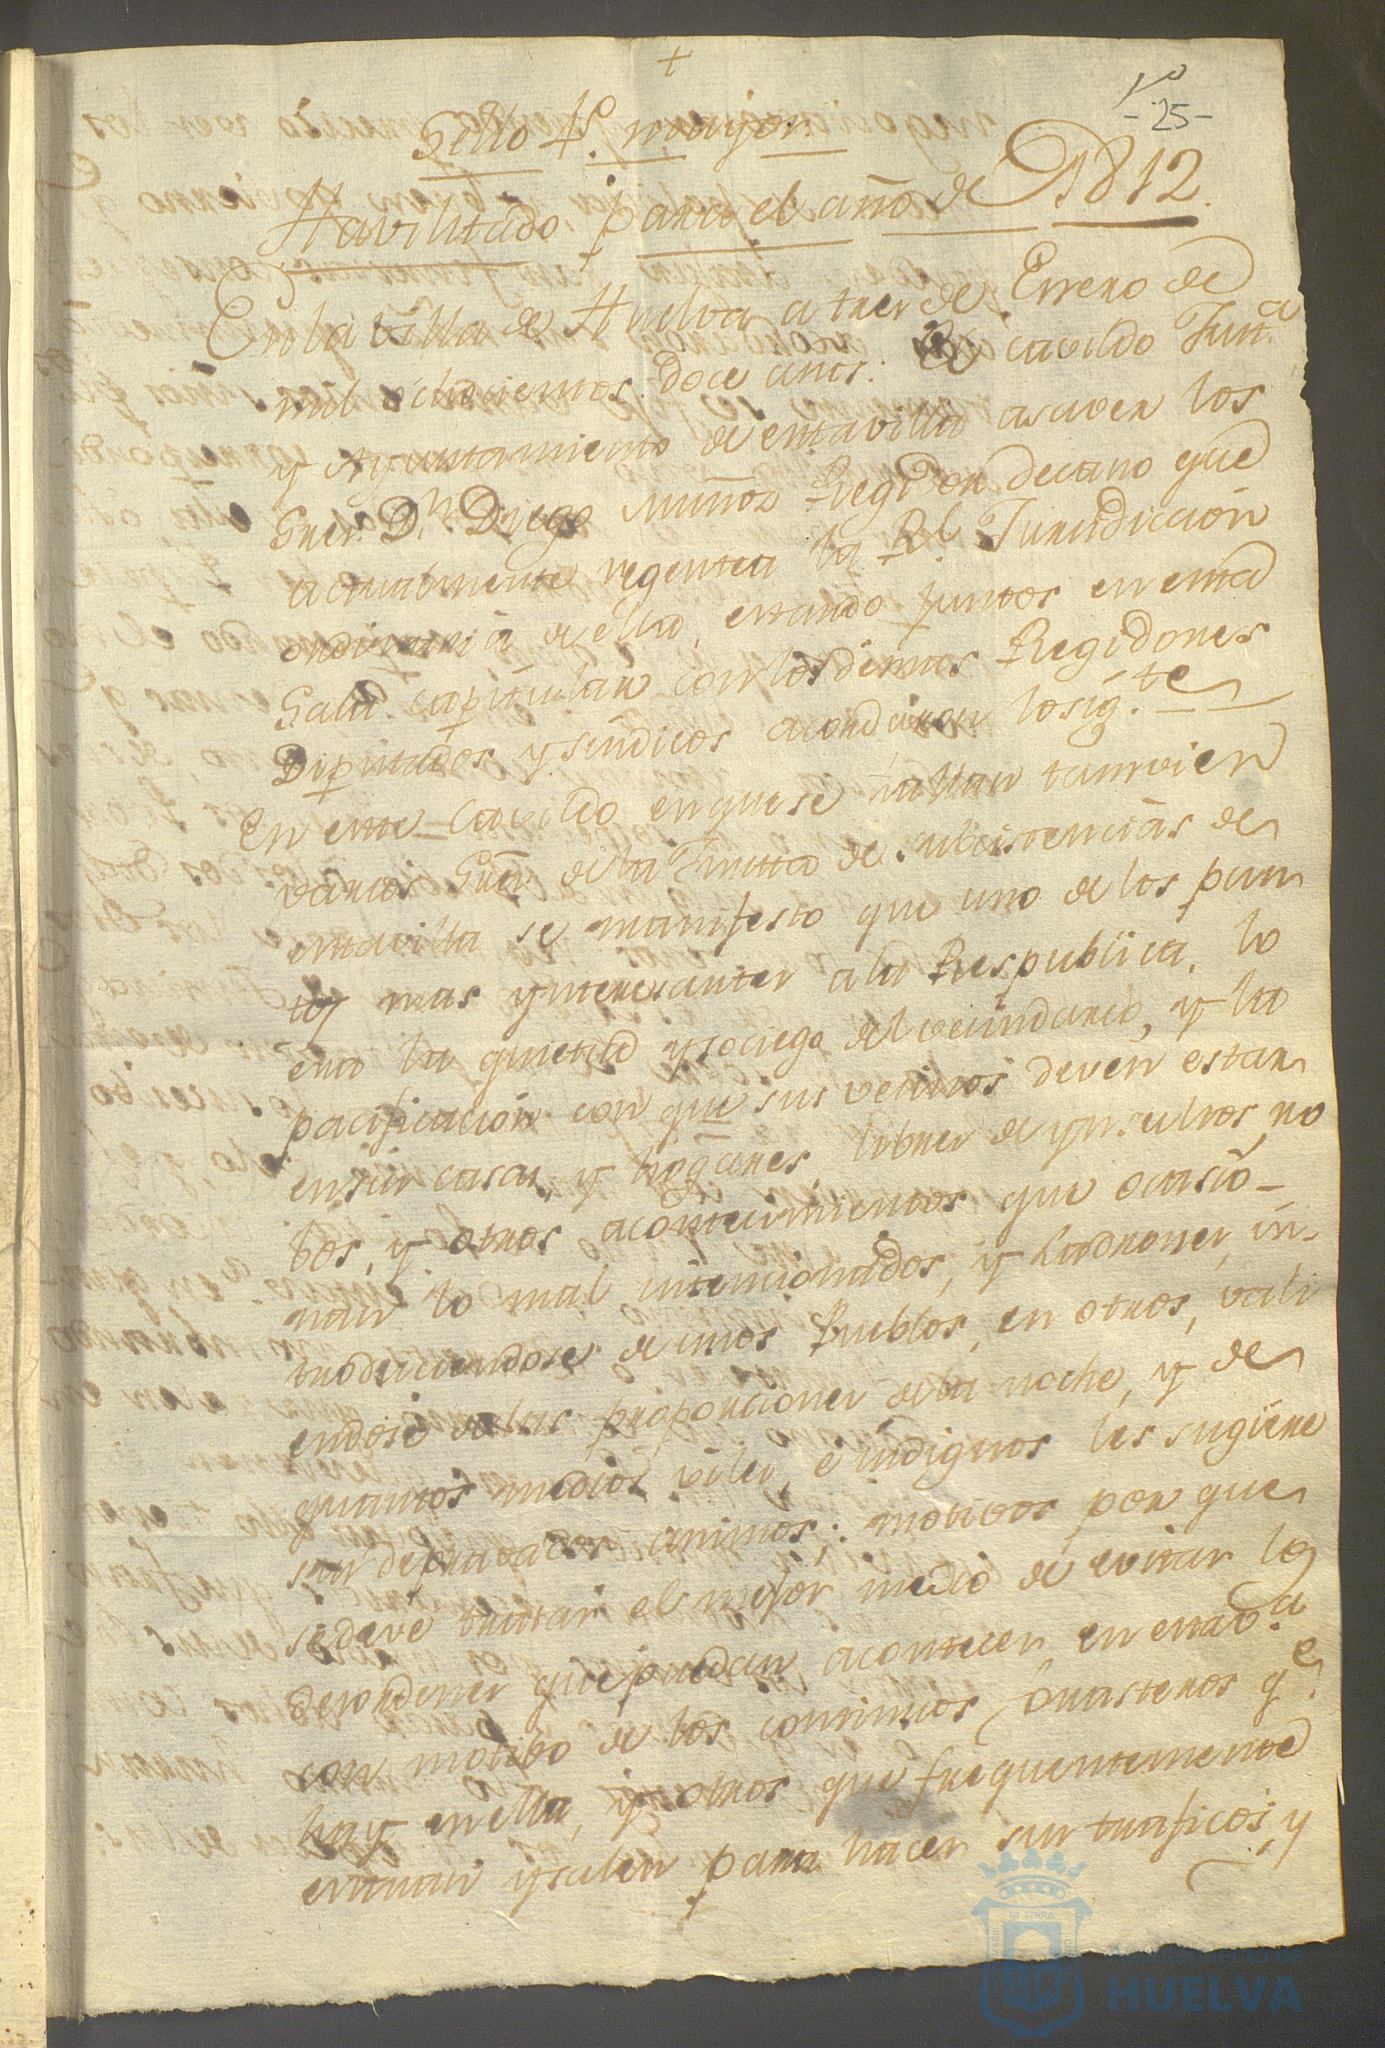 +
1º
-25-
Sello 4º. mayor
Havilitado, para el año de 1812.
En la villa de Huelva a tres de Enero de
mil ochocientos doce años: El cavildo Junt.ª
y Ayuntamiento de esta villa asaver los
Sres. D.n Diego Muñoz Regidor decano que
actualmente regenta la Rl. Jurisdiccion
ordinaria de ella, estando juntos en esta
Sala capitular con los demas Regidores
Diputados y sindicos acordaron lo sig.te
En este Cavildo en que se hallan tamvien
varios Sres de la Junta de subcistencias de
esta villa se manifesto que uno de los pun
tos mas ynteresantes a la Respublica, lo
era la quietud y sociego del vecindario, y la
pacificacion con que sus vecinos deven estar
en sus casas, y hogares, libres de ynsultos, ro
bos, y otros acontecimientos que ocasio-
nan lo mal intencionados, y Ladrones, in-
troduciendose de unos Pueblos, en otros, vali
endose de las proporciones de la noche, y de
quantos medios viles, é indignos les sugiere
sus depravados animos; motivos por que
se deve tratar el mejor medio de evitar los
desordenes que puedan acontecer en esta v.ª
con motibo de los continuos forasteros q.e
hay en ella, y otros que frequentemente
entran y salen para hacer sus traficos, y
HUELVA